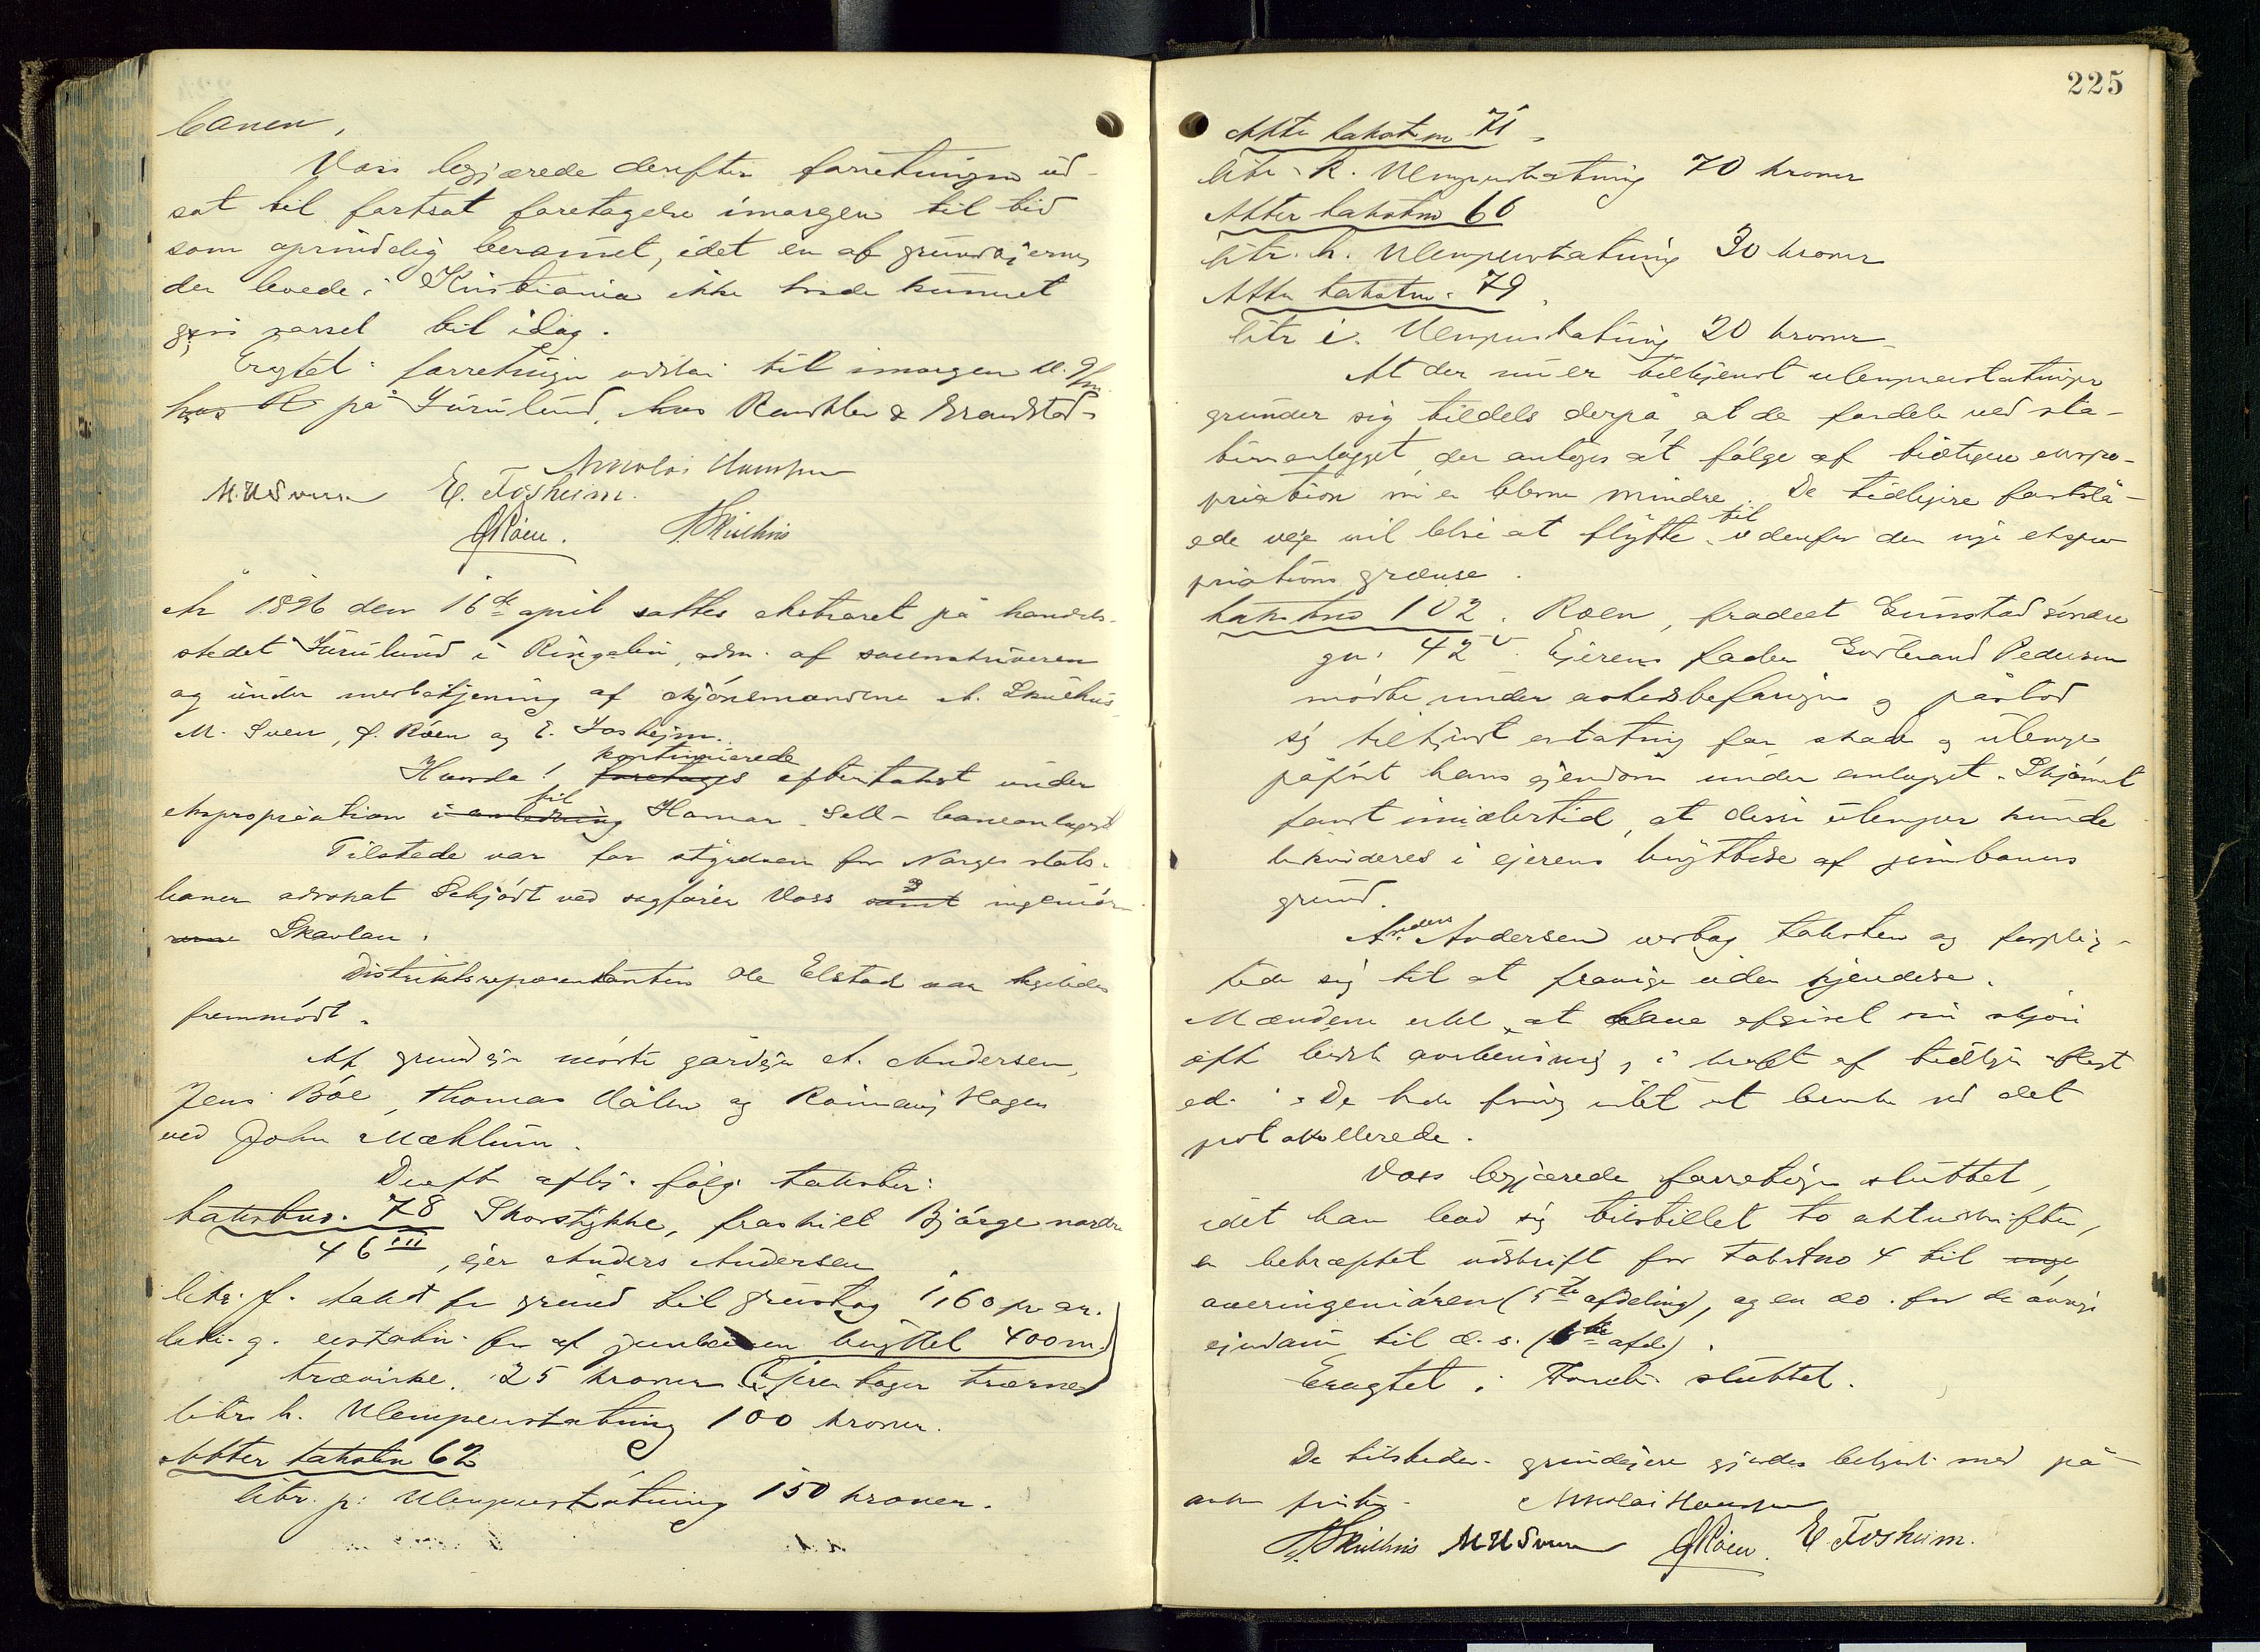 banen,
Voss begjærede derefter forretningen ud-
sat til fortsat foretagelse imorgen til tid
som oprindelig berammet, idet en af grundejerne,
der levede i Kristiania ikke havde kunnet
gives varsel til idag.
Eragtet: forretningen udstår til imorgen kl. 9 fm.
på Furulund, hos Raushler & Brandstad.
Nikolai Hansen
M. H. Sveen E. Fosheim.
J. Röen. A. Skullhus
År 1896 den 16de april sattes ekstraret på handels-
stedet Furulund i Ringebu, adm. af sorenskriveren
og under medbetjening af skjönsmændene A. Skullhus,
M. Sveen, J. Röen og E. Fosheim.
Hvorda! kontinuerede foretages eftertakst under
ekspropriation til i anledning Hamar-Sell-baneanlægget
Tilstede var for styrelsen for Norges stats-
baner advokat Schjödt ved sagförer Voss samt og ingeniör
Skavlan.
Distriktsrepræsentanten Ole Elstad var ligeledes
fremmödt.
Af grundejere mödte gårdejer A. Andersen,
Jens Böe, Thomas Hålen og Hagen
ved John Mæhlum.
Derefter afhj. fölg. takster:
Takstno. 78 Skorstykke, fraskilt Bjørge nordre
46 III, ejer Anders Andersen
litr. f. takst for grund til grustag 1,60 pr ar.
litr. g. erstatn. for af jernbanen benyttet 400 m.
trævirke. 25 kroner (Ejeren tager trærne)
litr. h. Ulempeerstatning 100 kroner.
Atter takstn 62
litr. p: Ulempeerstatning 150 kroner.
225
Atter takstn 71.
litr. k. Ulempeerstatning 70 kroner
Atter takstno 66
litr. h. Ulempeerstatning 30 kroner
Atter takstno. 79
litr i. Ulempeerstatning 20 kroner.
At der nu er tilkjendt ulempeerstatninger
grunder sig tildels derpå, at de fordele ved sta-
tionsanlægget, der antoges at fölge af tidligere ekspro-
priation nu er blevne mindre. De tidligere fastslå-
ede veje vil blive at flytte til udenfor den nye ekspro-
priations grænse.
Takstno 102. Roen, fradelt Gunstad söndre
gn. 42 v. Ejerens fader Gulbrand Pedersen
mödte under åstedsbefaringen og påstod
sig tilkjendt erstatning for skade og ulempe
påfört hans ejendom under anlægget. Skjönnet
fandt imidlertid, at disse ulemper kunde
likvideres i ejerens benyttelse af jernbanens
grund.
Anders Andersen vedtog taksten og forplig-
tede sig til at fravige uden kjendelse.
Mændene erkl. at have afgivet sin skjön
eft. bedste overbevisning, i kraft af tidligere aflagt
ed. De havde forövrig intet at bemærke ved det
protokollerede.
Voss begjærede forretningen sluttet,
idet han bad sig tilstillet to aktudskrifter,
en bekræftet udskrift for takstno 4 til
overingeniören (5te afdeling), og en do. for de övrige
ejendomme til d. s. (6te afd).
Eragtet: Forretn. sluttet.
De tilstedev. grundejere gjordes bekjendt med på-
anke fristen.
Nikolai Hansen
A. Skullhus M. H. Sveen J. Röen. E. Fosheim.